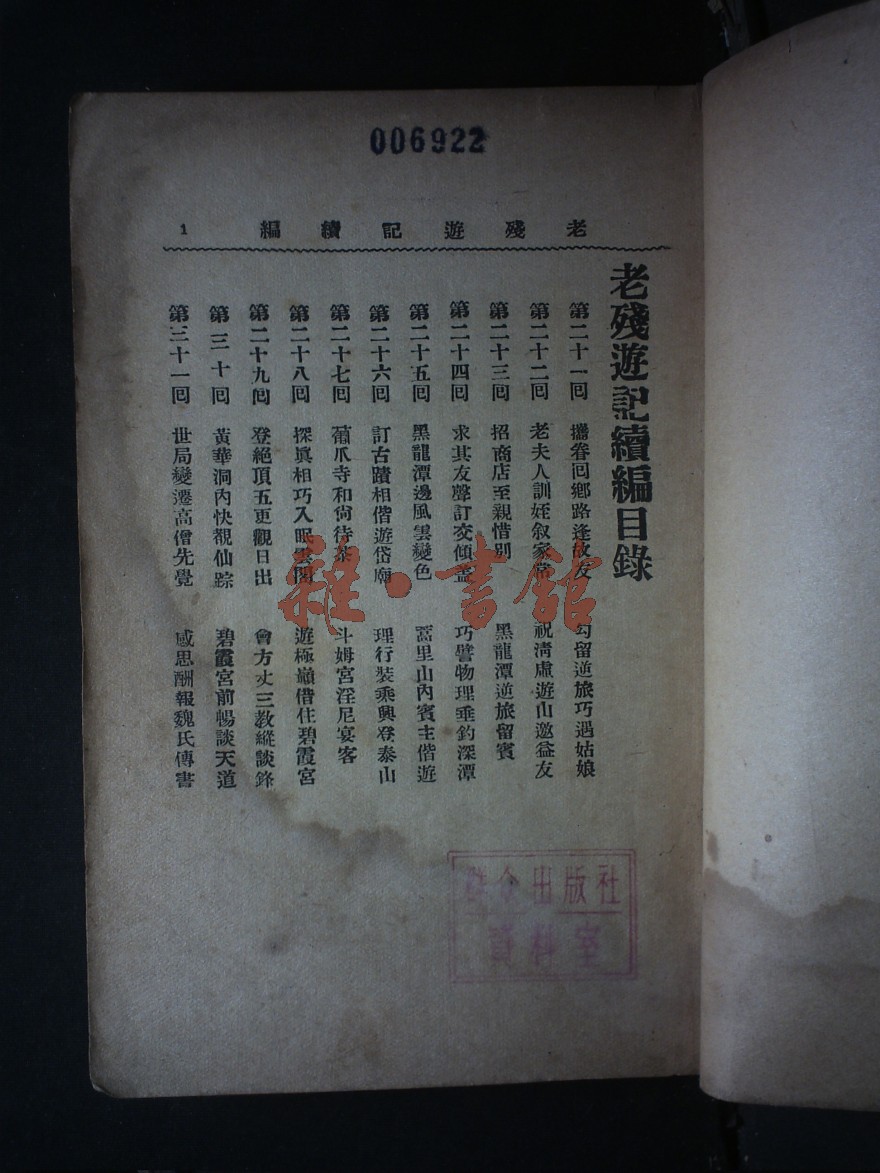 006922
老殘遊記續編 1
老殘遊記續編目錄
第二十一回 攜眷回鄉路逢故友 勾留逆旅巧遇姑娘
第二十二回 老夫人訓姪敘家常 祝淸虛遊山邀益友
第二十三回 招商店至親惜別 黑龍潭逆旅留賓
第二十四回 求其友聲訂交傾蓋 巧譬物理垂釣深潭
第二十五回 黑龍潭邊風雲變色 蒿里山內賓主偕遊
第二十六回 訂古蹟相偕遊岱廟 理行裝乘興登泰山
第二十七回 葡爪寺和尙待茶 斗姆宮淫尼宴客
第二十八回 探眞相巧入眠雲閣 遊極巓借住碧霞宮
第二十九回 登絕頂五更觀日出 會方丈三教縱談鋒
第三十回 黃華洞內快覩仙踪 碧霞宮前暢談天道
第三十一回 世局變遷高僧先覺 感恩酬報魏氏傳書
雜·書館
群众出版社
資料室